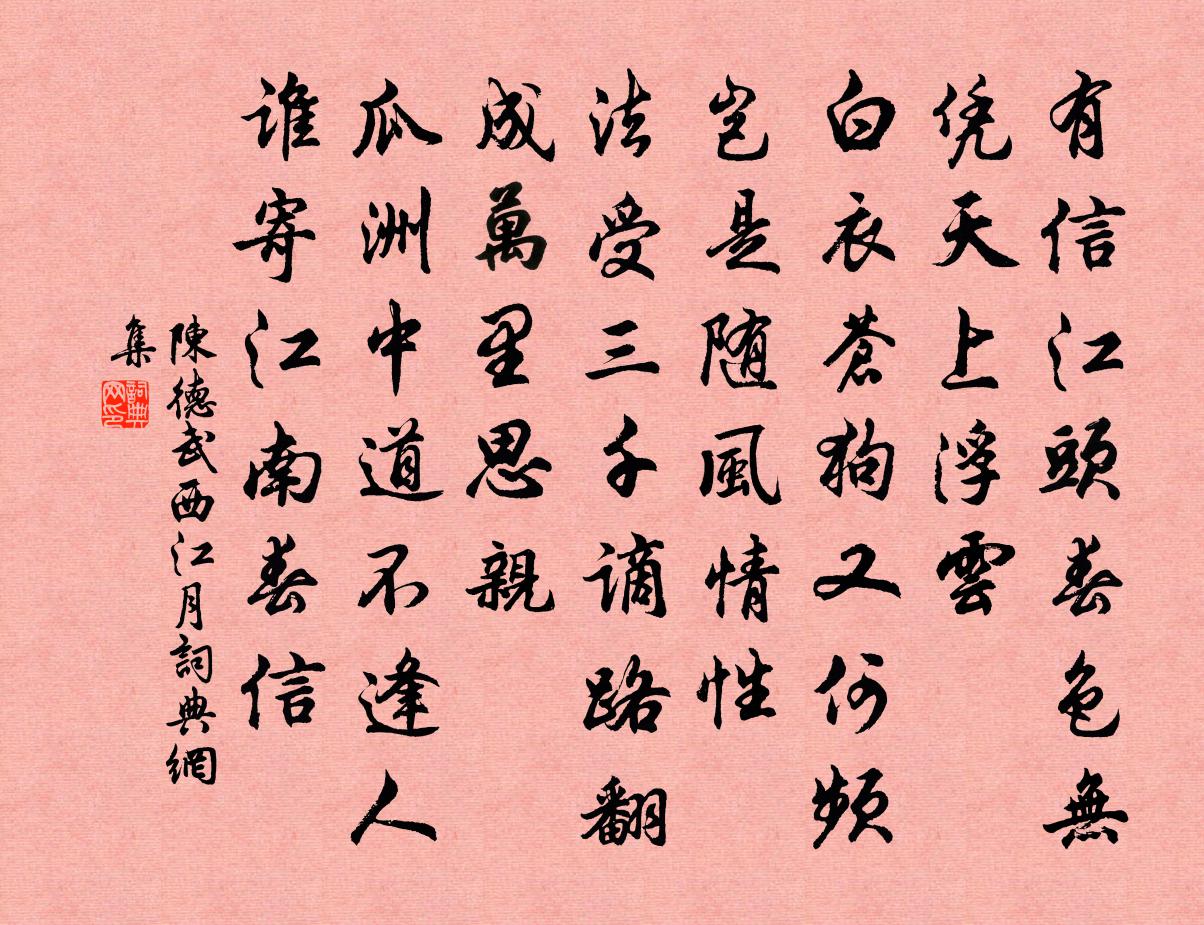 有信江頭春色無
凭天上浮雲
白衣蒼狗又何頻
豈是随風情性
法受三千謫路翻
成萬里思親
瓜洲中道不逢人
谁寄江南春信
陳德武西江月詞典網
集
詞典網印